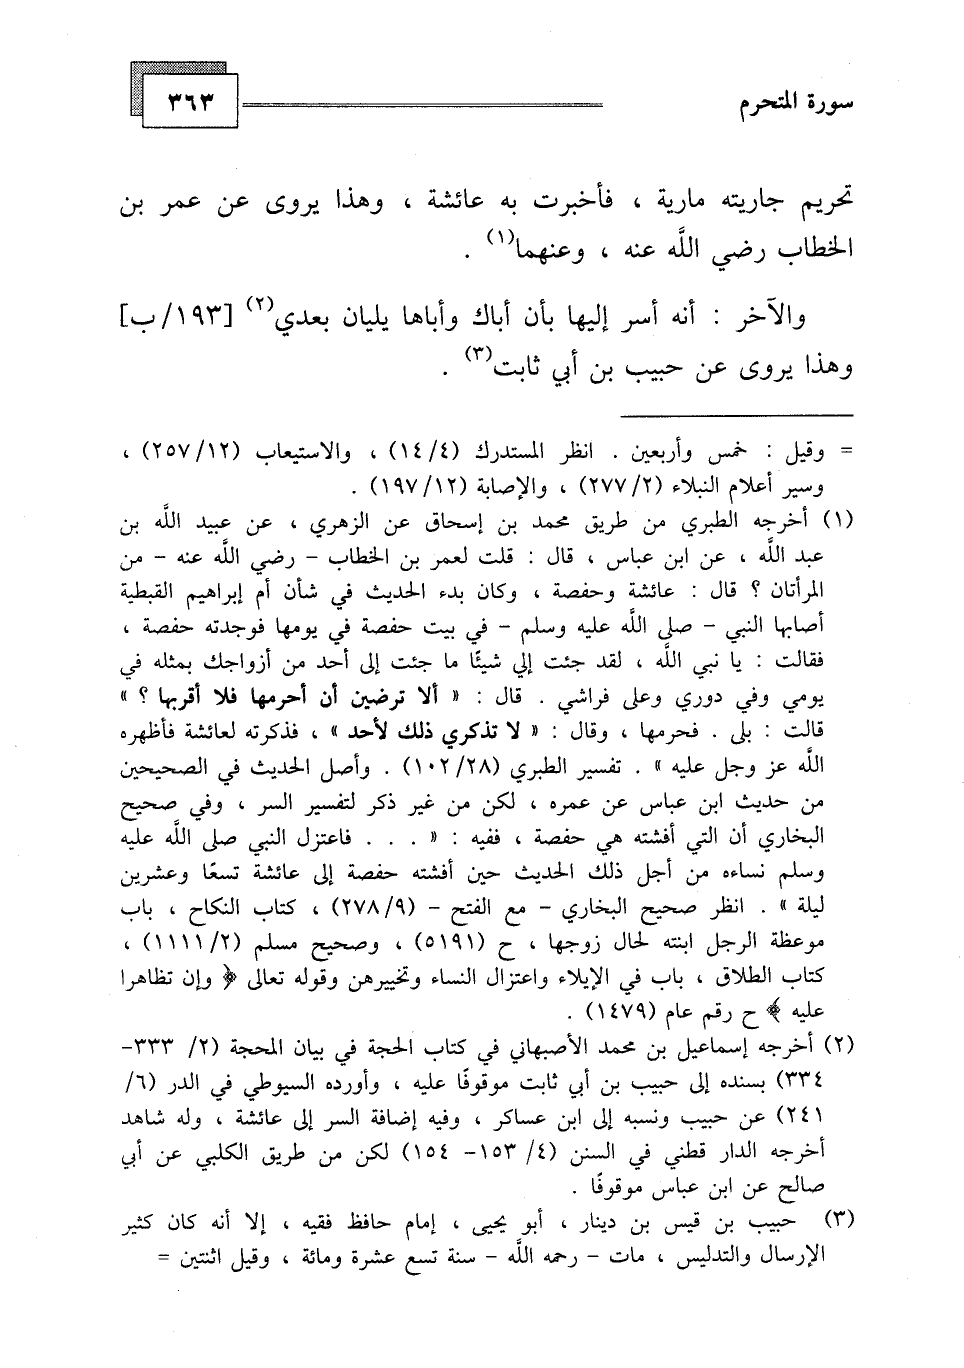 سورة المتحرم
٣٦٣
تحريم جاريته مارية ، فأخبرت به عائشة ، وهذا يروى عن عمر بن
الخطاب رضي اللَّه عنه ، وعنهما(١) .
والآخر : أنه أسر إليها بأن أباك وأباها يليان بعدي(٢) [١٩٣/ب]
وهذا يروى عن حبيب بن أبي ثابت(٣) .
= وقيل : خمس وأربعين . انظر المستدرك (١٤/٤) ، والاستيعاب (٢٥٧/١٢) ،
وسير أعلام النبلاء (٢٧٧/٢) ، والإصابة (١٩٧/١٢) .
(١) أخرجه الطبري من طريق محمد بن إسحاق عن الزهري ، عن عبيد اللَّه بن
عبد اللَّه ، عن ابن عباس ، قال : قلت لعمر بن الخطاب – رضي اللَّه عنه – من
المرأتان ؟ قال : عائشة وحفصة ، وكان بدء الحديث في شأن أم إبراهيم القبطية
أصابها النبي – صلى اللَّه عليه وسلم – في بيت حفصة في يومها فوجدته حفصة ،
فقالت : يا نبي اللَّه ، لقد جئت إلي شيئًا ما جئت إلى أحد من أزواجك بمثله في
يومي وفي دوري وعلى فراشي . قال : « ألا ترضين أن أحرمها فلا أقربها ؟ »
قالت : بلى . فحرمها ، وقال : « لا تذكري ذلك لأحد » ، فذكرته لعائشة فأظهره
اللَّه عز وجل عليه » . تفسير الطبري (١٠٢/٢٨) . وأصل الحديث في الصحيحين
من حديث ابن عباس عن عمره ، لكن من غير ذكر لتفسير السر ، وفي صحيح
البخاري أن التي أفشته هي حفصة ، ففيه : « . . . فاعتزل النبي صلى اللَّه عليه
وسلم نساءه من أجل ذلك الحديث حين أفشته حفصة إلى عائشة تسعًا وعشرين
ليلة » . انظر صحيح البخاري – مع الفتح – (٢٧٨/٩) ، كتاب النكاح ، باب
موعظة الرجل ابنته لحال زوجها ، ح (٥١٩١) ، وصحيح مسلم (١١١١/٢) ،
كتاب الطلاق ، باب في الإيلاء واعتزال النساء وتخييرهن وقوله تعالى ﴿ وإن تظاهرا
عليه ﴾ ح رقم عام (١٤٧٩) .
(٢) أخرجه إسماعيل بن محمد الأصبهاني في كتاب الحجة في بيان المحجة (٢/ ٣٣٣–
٣٣٤) بسنده إلى حبيب بن أبي ثابت موقوفًا عليه ، وأورده السيوطي في الدر (٦/
٢٤١) عن حبيب ونسبه إلى ابن عساكر ، وفيه إضافة السر إلى عائشة ، وله شاهد
أخرجه الدار قطني في السنن (٤/ ١٥٣– ١٥٤) لكن من طريق الكلبي عن أبي
صالح عن ابن عباس موقوفًا .
(٣) حبيب بن قيس بن دينار ، أبو يحيى ، إمام حافظ فقيه ، إلا أنه كان كثير
الإرسال والتدليس ، مات – رحمه اللَّه – سنة تسع عشرة ومائة ، وقيل اثنتين =